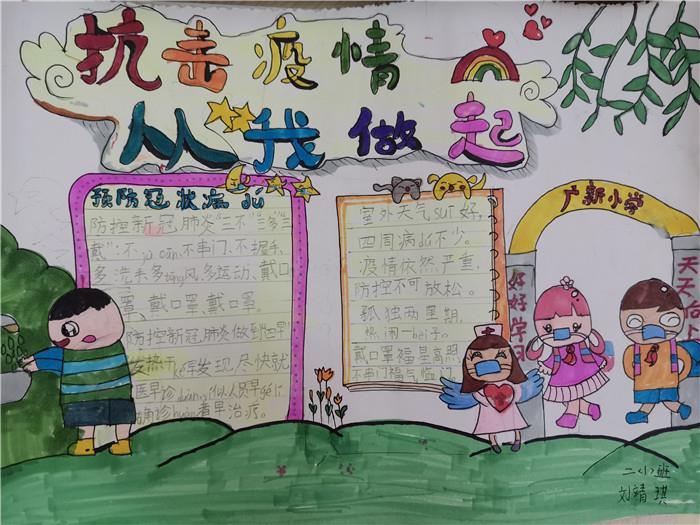 抗击疫情
从我做起
预防冠状病dú
防控新冠肺炎"三不""三多""三
戴":不jù cān,不串门、不握手、
多洗手多tōng风,多运动、戴口
罩、戴口罩、戴口罩。
防控新冠肺炎做到"四早"
发热干ké早发现,尽快就
医早诊duàn,似人员早gé lí
确诊huàn者早治疗。
室外天气sur好,
四周病dú不少。
疫情依然严重,
防控不可放松。
孤独两星期,
热闹一bèi子。
戴口罩福星高照,
不串门福气临门
广新小学
好好学习
天天向
二(小)班
刘靖琪